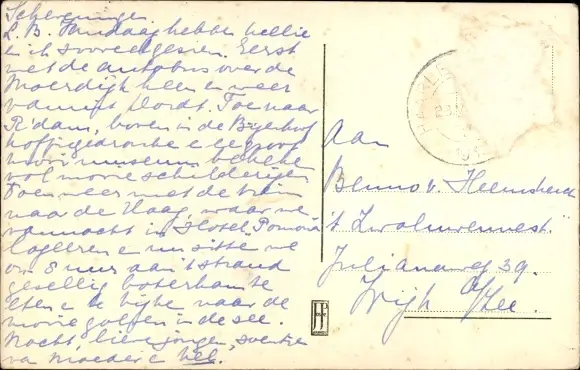 Scheveningen.
L. B. Vandaag hebben Nellie
en ik zooveel gezien. Eerst
met de autobus over de
Moerdijk heen en weer
vanuit Dordt. Toen naar
R'dam, boven in de Bijenkorf
koffiegedronke e
museum
vol mooie schilderijen
Toen weer met de trein
naar de Haag, waar we
vannacht in Hotel Pomona
logeeren e nu zitte we
om 8 uur aan 't strand
gezellig boterham te
eten e te kijke naar de
mooie golfen in de zee.
Nacht, lieve jongen, zoentje
van Moeder e Nel.
Aan
Benno v. Heemskerck
't Zwaluwennest.
Julianaweg 39.
Wijk a/Zee.